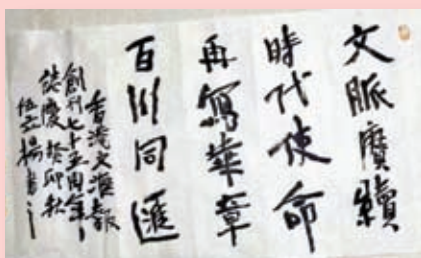 文脈賡續
時代使命
再寫華章
百川同匯
香港文滙報
創刊七十五周年
誌慶 癸卯秋
伍立楊書